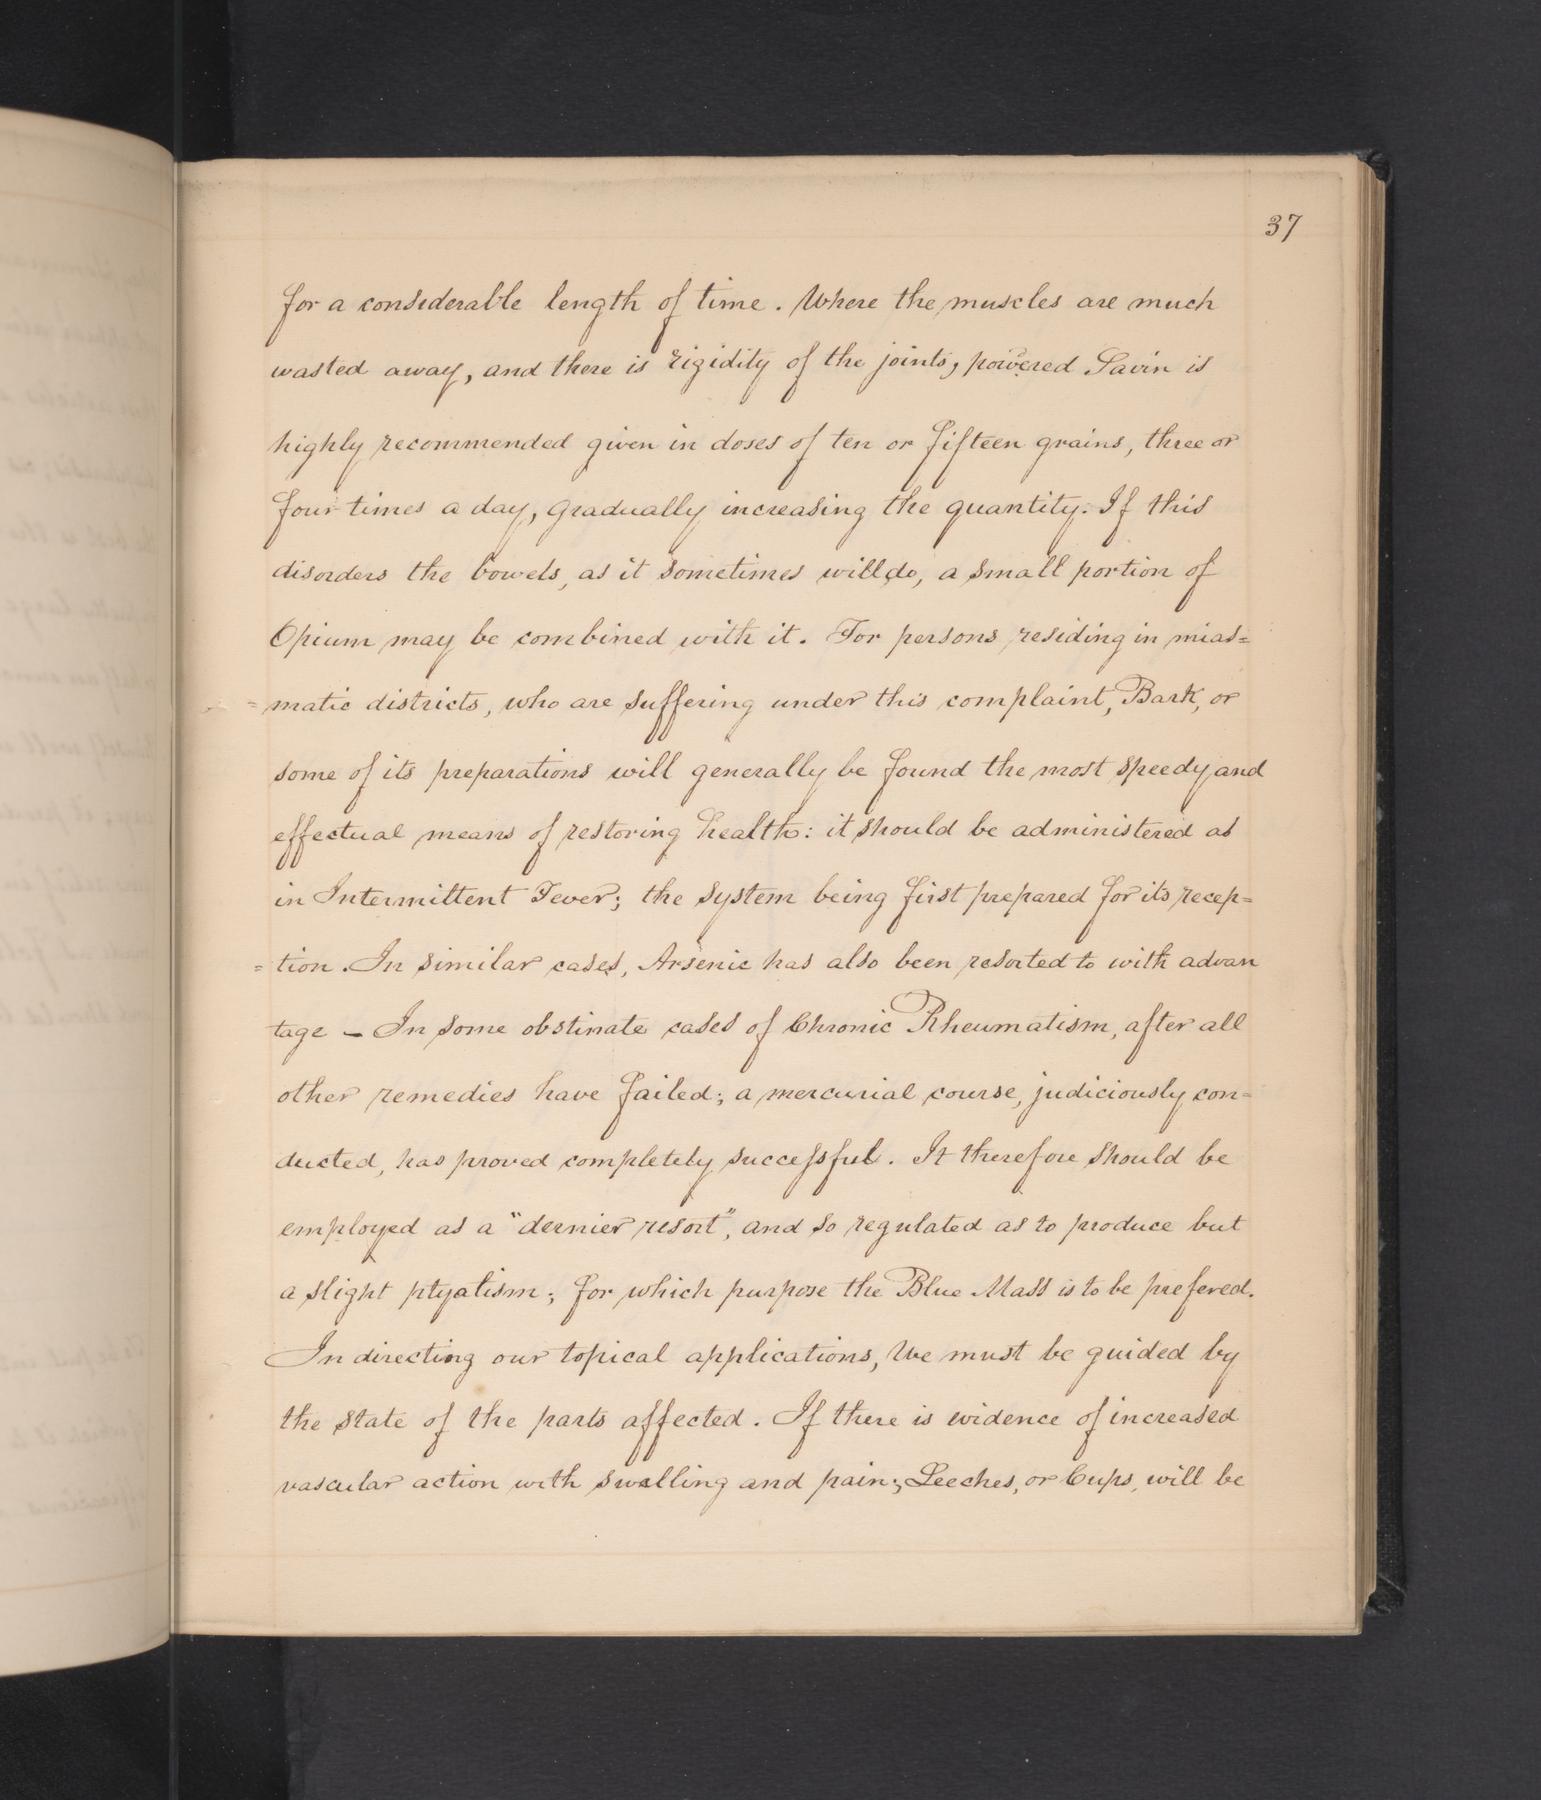 37
for a considerable length of time. Where the muscles are much
wasted away, and there is rigidity of the joints, powered Savin is
highly recommended given in doses of ten or fifteen grains, three or
four times a day, gradually increasing the quantity. If this
disorders the bowels, as it sometimes will do, a small portion of
Opium may be combined with it. For persons residing in mias=
=matic districts, who are suffering under this complaint, Bark, or
some of its preparations will generally be found the most speedy and
effectual means of restoring health: it should be administered as
in Intermittent Fever; the system being first prepared for its recep=
=tion. In similar cases, Arsenic has also been resorted to with advan
tage – In some obstinate cases of Chronic Rheumatism, after all
other remedies have failed; a mercurial course, judiciously con=
ducted, has proved completely successful. It therefore should be
employed as a "dernier resort", and so regulated as to produce but
a slight ptyalism; for which purpose the Blue Mass is to be prefered.
In directing our topical applications, We must be guided by
the state of the parts affected. If there is evidence of increased
vascular action with swelling and pain; Leeches, or Cups, will be